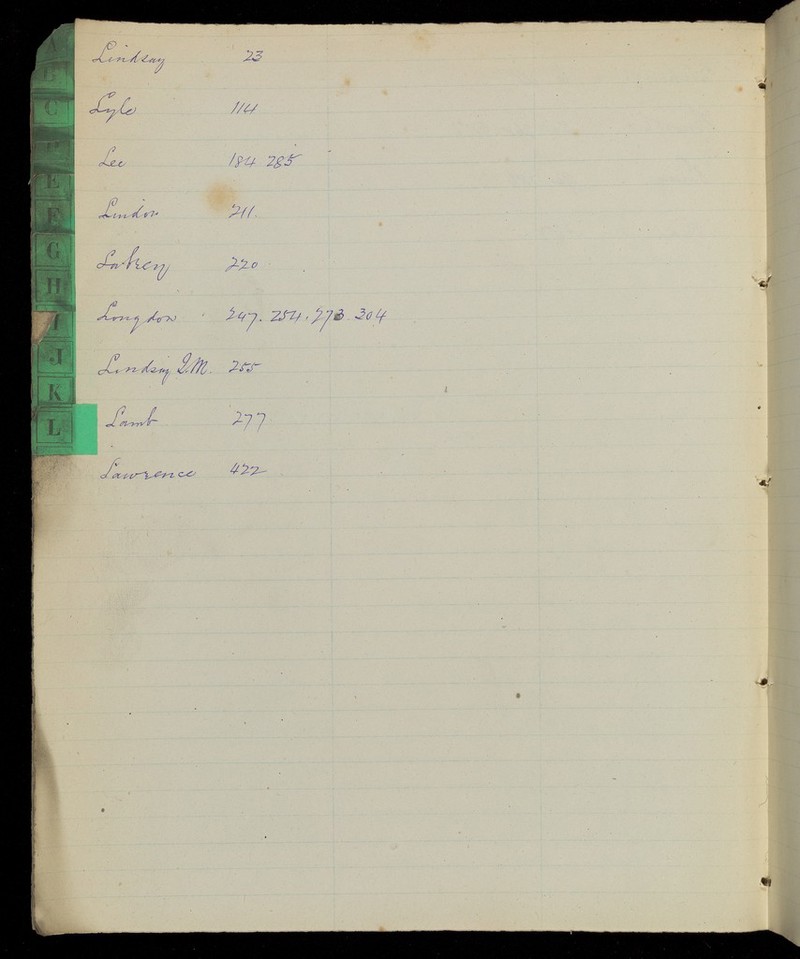 A
B
C
D
E
F
G
H
I
J
K
L
Lindsay 23
Lyle 114
Lee 184 285
Lindon 211
220
Longdon 247. 254. 273 304
Lindsay 255
Lamb 277
Lawrence 422